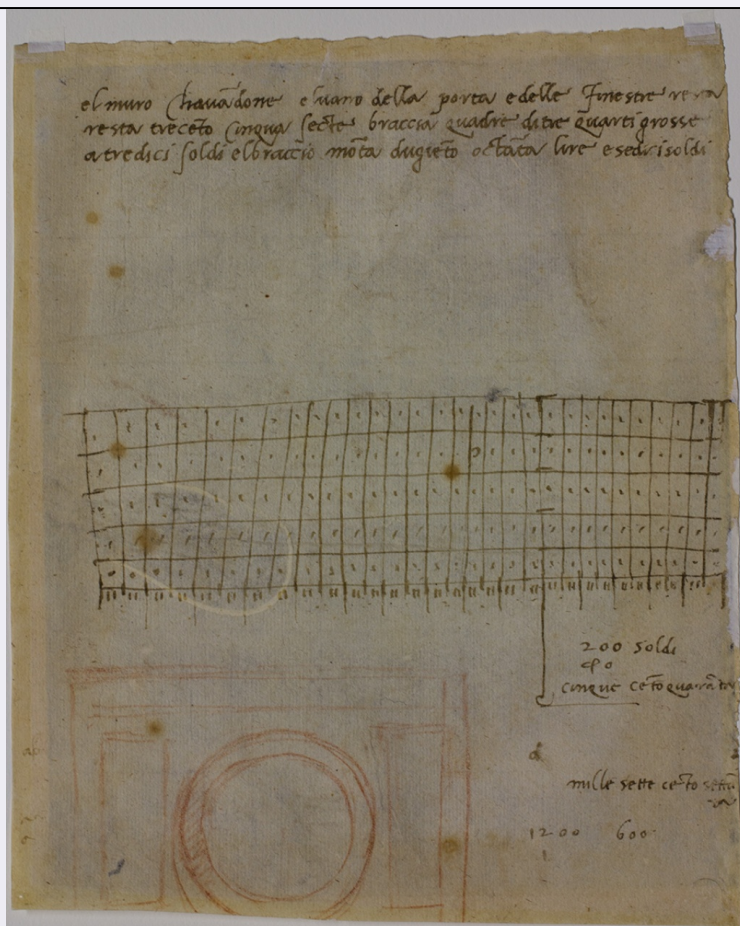 el muro chavādone el vano della porta e delle finestre resta
resta treceto cinqua secte braccia quadre di tre quarti grosse
a tredici soldi el braccio mōta dugiēto octāta lire e sedici soldi
200 soldi
cinque cētoquarāta
mille sette cēto
1200 600